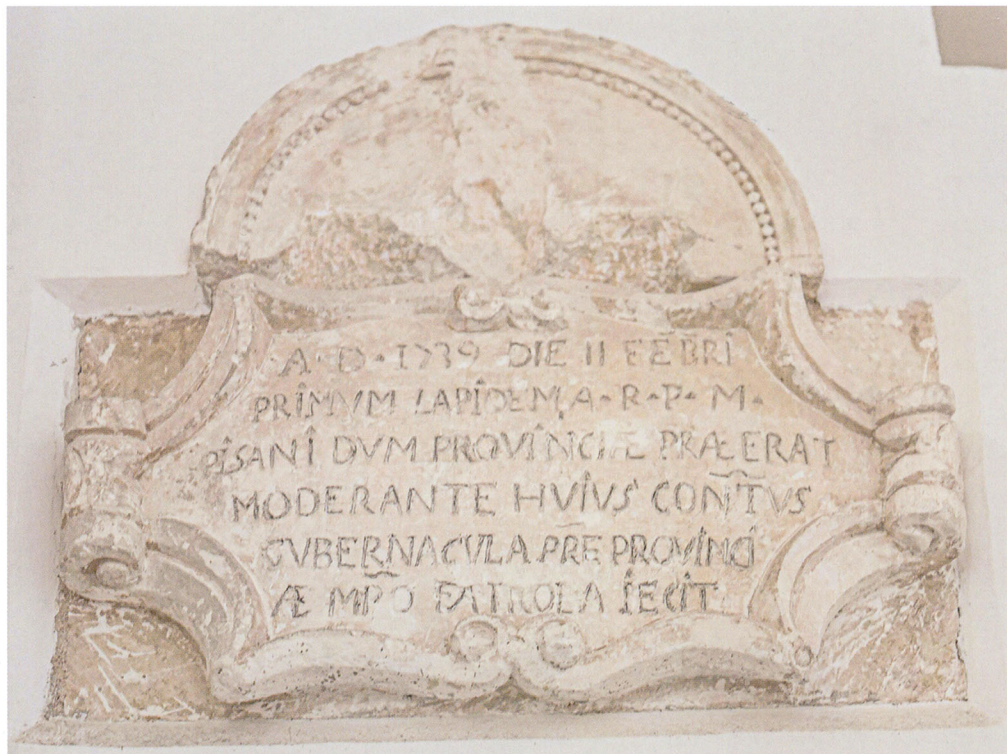 A · D · 1739 DIE 11 FEBRI
PRIMVM LAPIDEM A · R · P · M ·
PISANI DVM PROVINCIÆ PRÆERAT
MODERANTE HVIVS CON̅T̅VS
GVBERNACVLA PR̅E PROVINCI
Æ MP̅O FATROLA IECIT